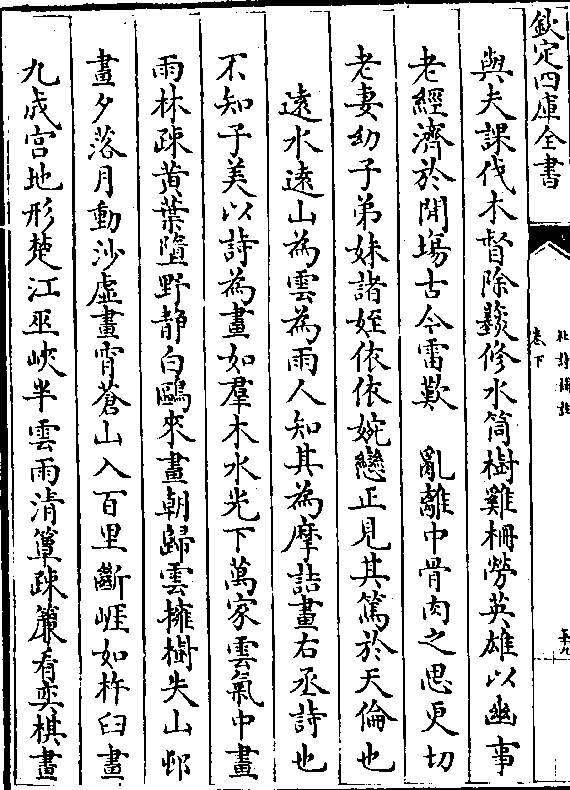 欽定四庫全書
杜詩詳註
卷下
與夫課伐木督除修水筒樹雞柵勞英雄以幽事
老經濟於閒場古今雷歎　亂離中骨肉之思更切
老妻幼子弟妹諸姪依依婉戀正見其篤於天倫也
遠水遠山為雲為雨人知其為摩詰畫右丞詩也
不知子美以詩為畫如羣木水光下萬家雲氣中畫
雨林疎黃葉墮野静白鷗來畫朝歸雲擁樹失山邨
畫夕落月動沙虛畫宵蒼山入百里斷崕如杵臼畫
九成宮地形楚江巫峽半雲雨清簟疎簾看奕棋畫